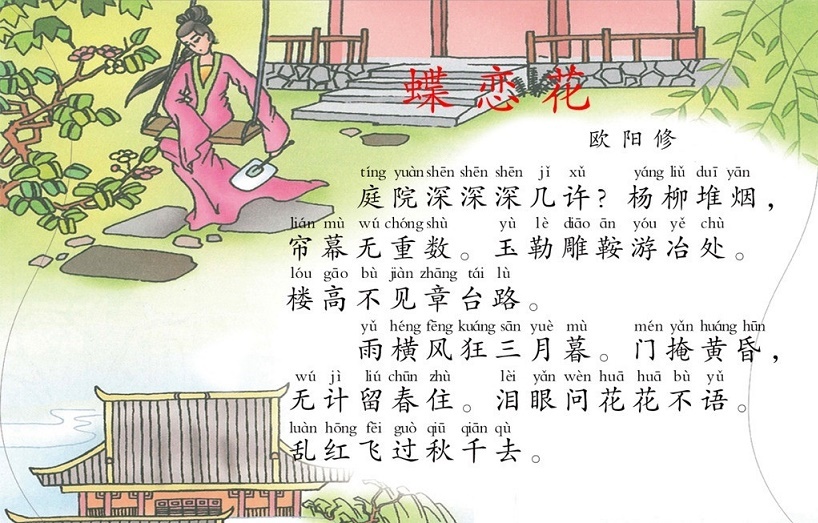 蝶恋花
欧阳修
tíng yuàn shēn shēn shēn jǐ xǔ yáng liǔ duī yān
庭院深深深几许？杨柳堆烟，
lián mù wú chóng shù yù lè diāo ān yóu yě chù
帘幕无重数。玉勒雕鞍游冶处。
lóu gāo bù jiàn zhāng tái lù
楼高不见章台路。
yǔ héng fēng kuáng sān yuè mù mén yǎn huáng hūn
雨横风狂三月暮。门掩黄昏，
wú jì liú chūn zhù lèi yǎn wèn huā huā bù yǔ
无计留春住。泪眼问花花不语。
luàn hōng fēi guò qiū qiān qù
乱红飞过秋千去。